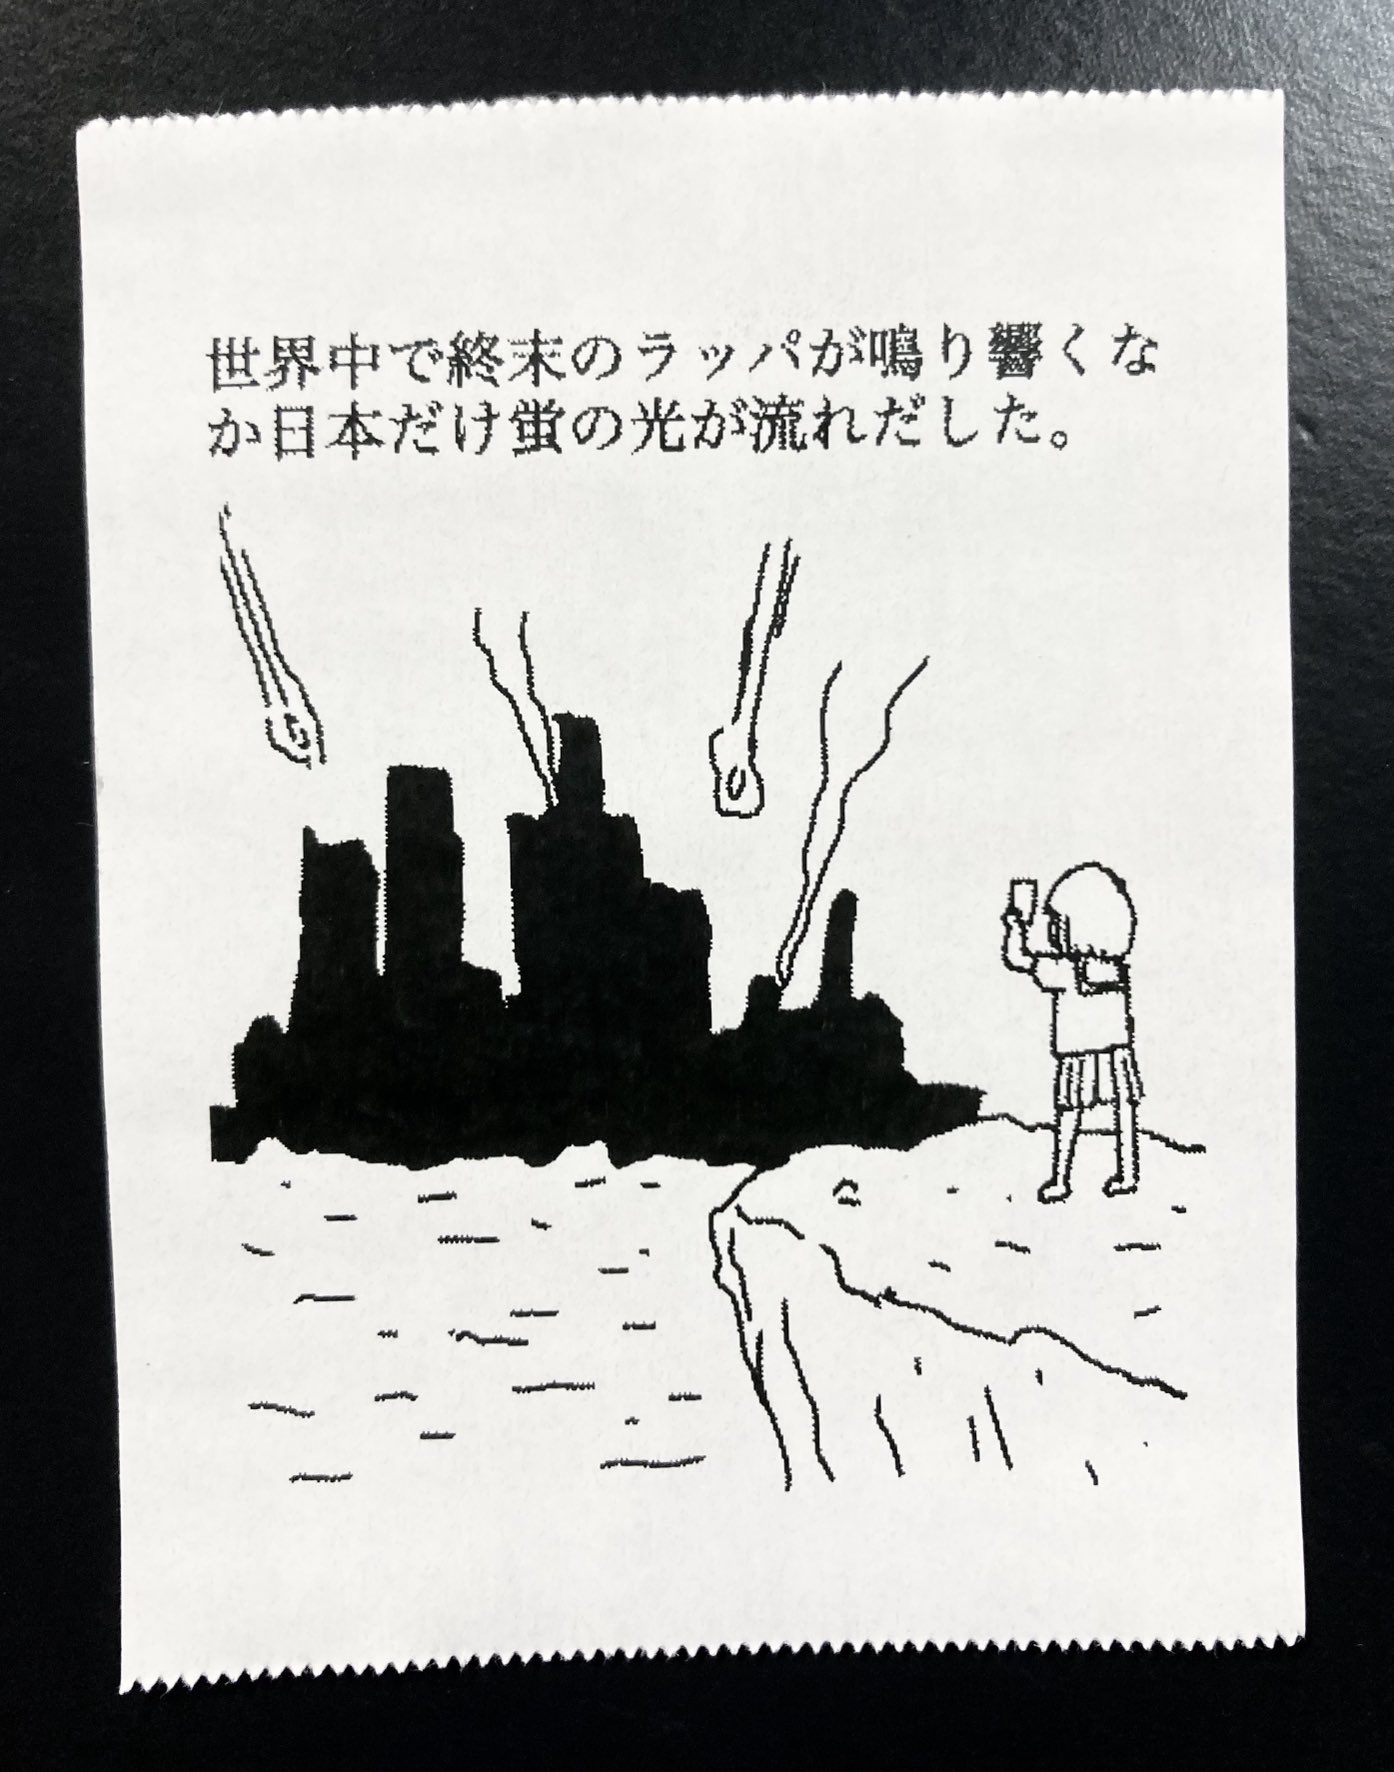 世界中で終末のラッパが鳴り響くな
か日本だけ蛍の光が流れだした。